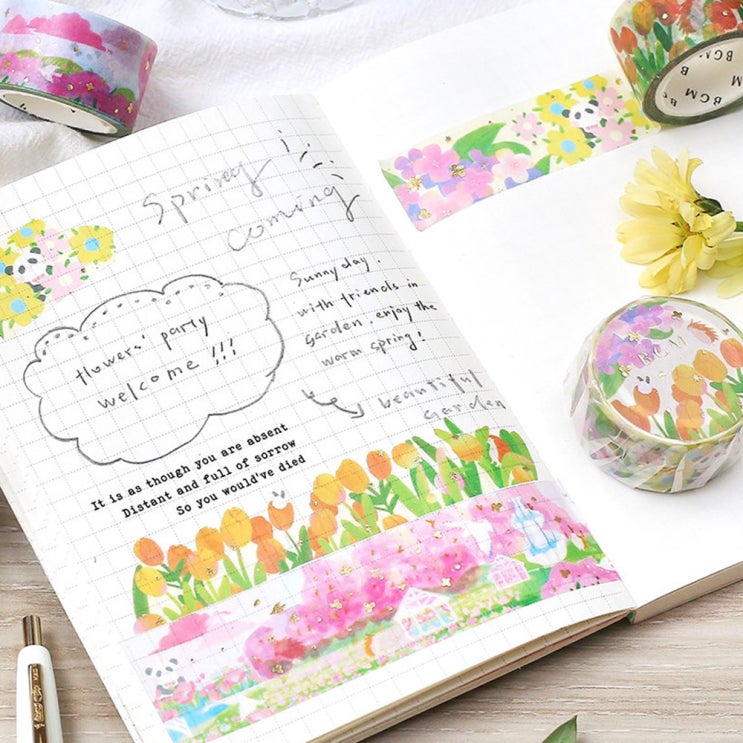 Spring
coming
flowers' party
welcome !!!
Sunny day.
with friends in
garden. enjoy the
warm spring!
beautiful
garden
It is as though you are absent
Distant and full of sorrow
So you would've died
BGM
BGM